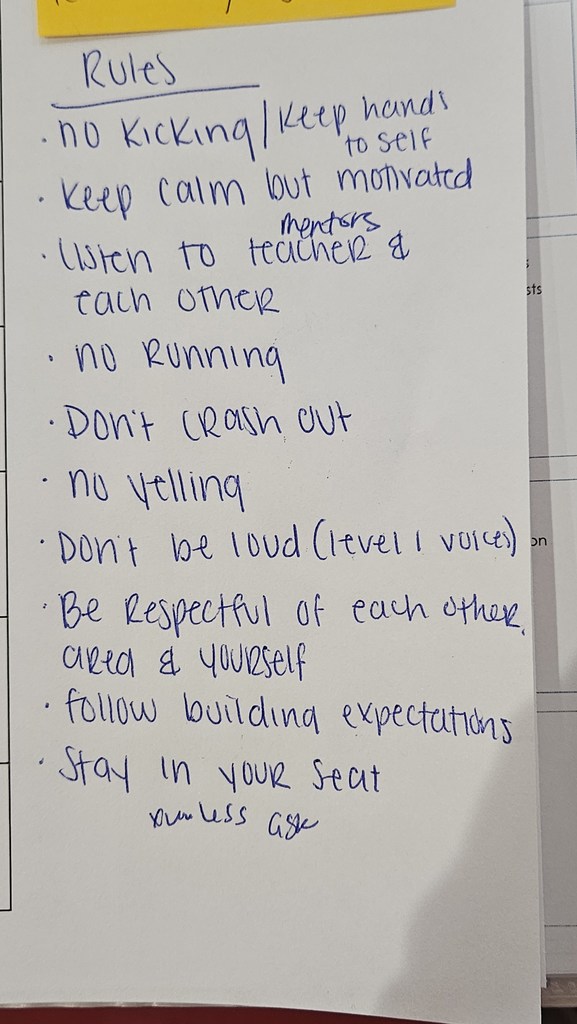 Rules
• no kicking/keep hands
to self
• keep calm but motivated
mentors
• listen to teacher &
each other
• no running
• Don't crash out
• no yelling
• Don't be loud (level 1 voices)
• Be Respectful of each other,
area & yourself
• follow building expectations
• Stay in your seat
unless ask
sts
on